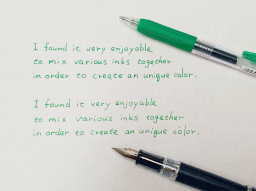 I found it very enjoyable
to mix various inks together
in order to create an unique color.
I found it very enjoyable
to mix various inks together
in order to create an unique color.